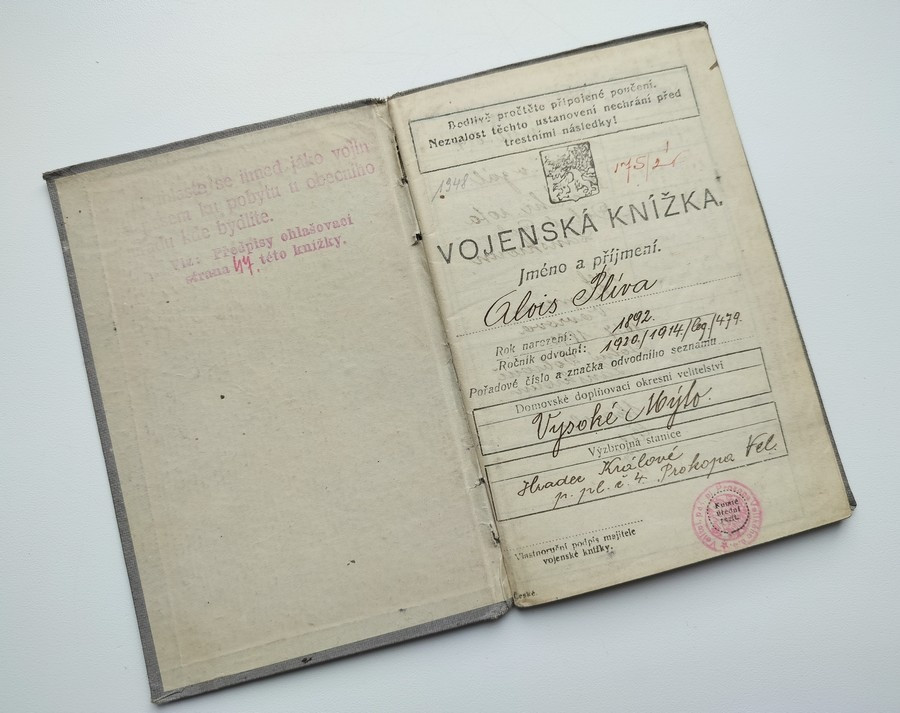 ihned jako
ku pobytu u obecního
kde bydlíte.
Viz: Předpisy ohlašovací
strana 47. této knížky.
Bedlivě pročtěte připojené poučení.
Neznalost těchto ustanovení nechrání před
trestními následky!
1948
175/2
VOJENSKÁ KNÍŽKA.
Jméno a příjmení.
Alois Plíva
Rok narození: 1892.
Ročník odvodní: 1920/1914/leg/479.
Pořadové číslo a značka odvodního seznamu
Domovské doplňovací okresní velitelství
Vysoké Mýto.
Výzbrojná stanice
Hradec Králové
p. pl. č 4. Prokopa Vel.
Vlastnoruční podpis majitele
vojenské knížky.
České.